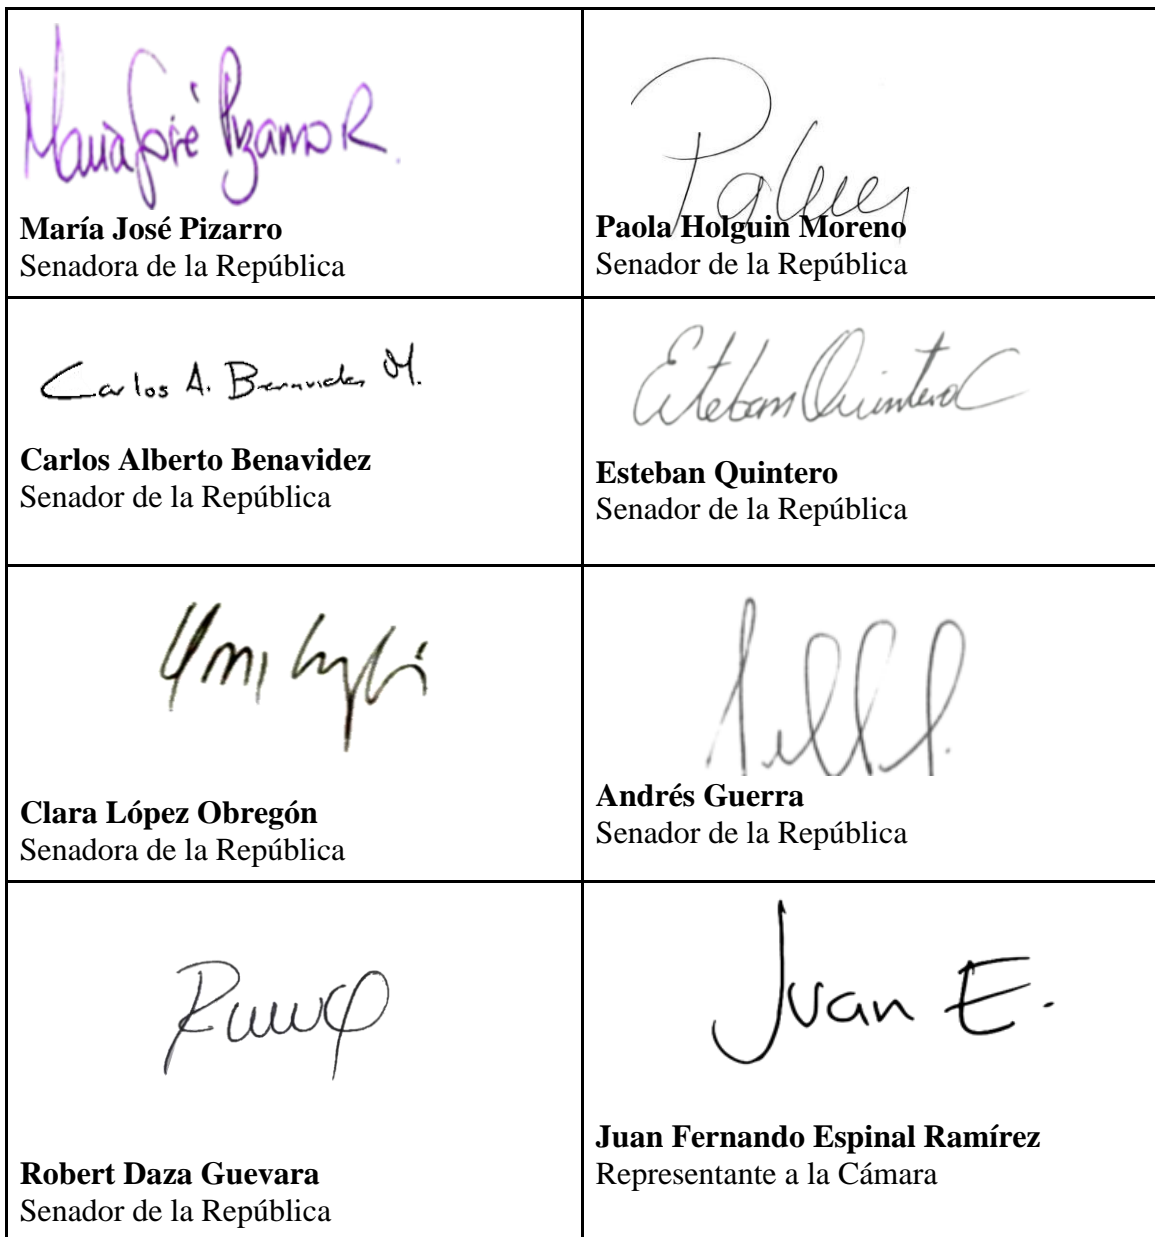 María José Pizarro R.
María José Pizarro
Senadora de la República
Paola Holguin Moreno
Senador de la República
Carlos A. Benavides M.
Carlos Alberto Benavidez
Senador de la República
Esteban Quintero C
Esteban Quintero
Senador de la República
Clara López Obregón
Senadora de la República
Andrés Guerra
Senador de la República
Robert Daza Guevara
Senador de la República
Juan E.
Juan Fernando Espinal Ramírez
Representante a la Cámara